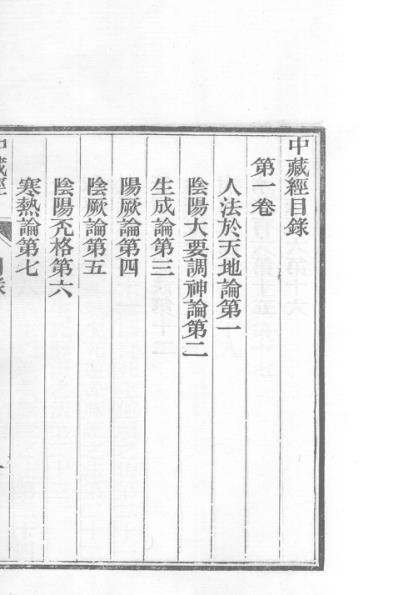 中藏經目錄
第一卷
人法於天地論第一
陰陽大要調神論第二
生成論第三
陽厥論第四
陰厥論第五
陰陽否格第六
寒熱論第七
中藏經
目錄